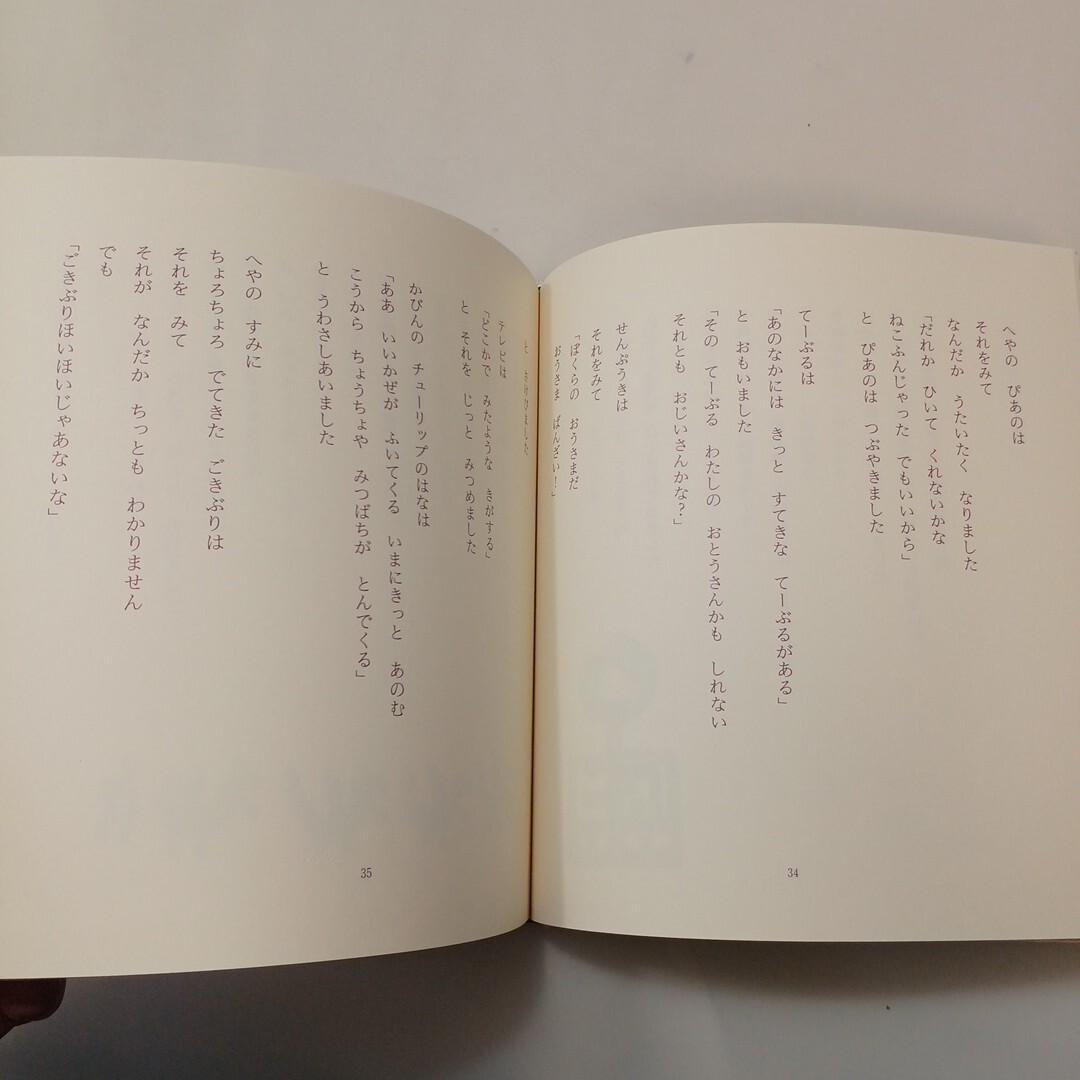 へやの　ぴあのは
それをみて
なんだか　うたいたく　なりました
「だれか　ひいて　くれないかな
ねこふんじゃった　でもいいから」
と　ぴあのは　つぶやきました
てーぶるは
「あのなかには　きっと　すてきな　てーぶるがある」
と　おもいました
「その　てーぶる　わたしの　おとうさんかも　しれない
それとも　おじいさんかな？」
せんぷうきは
それをみて
「ぼくらの　おうさまだ
おうさま　ばんざい！」
34
と
テレビは
「どこかで　みたような　きがする」
と　それを　じっと　みつめました
かびんの　チューリップのはなは
「ああ　いいかぜが　ふいてくる　いまにきっと　あのむ
こうから　ちょうちょや　みつばちが　とんでくる」
と　うわさしあいました
へやの　すみに
ちょろちょろ　でてきた　ごきぶりは
それを　みて
それが　なんだか　ちっとも　わかりません
でも
「ごきぶりほいほいじゃあないな」
35